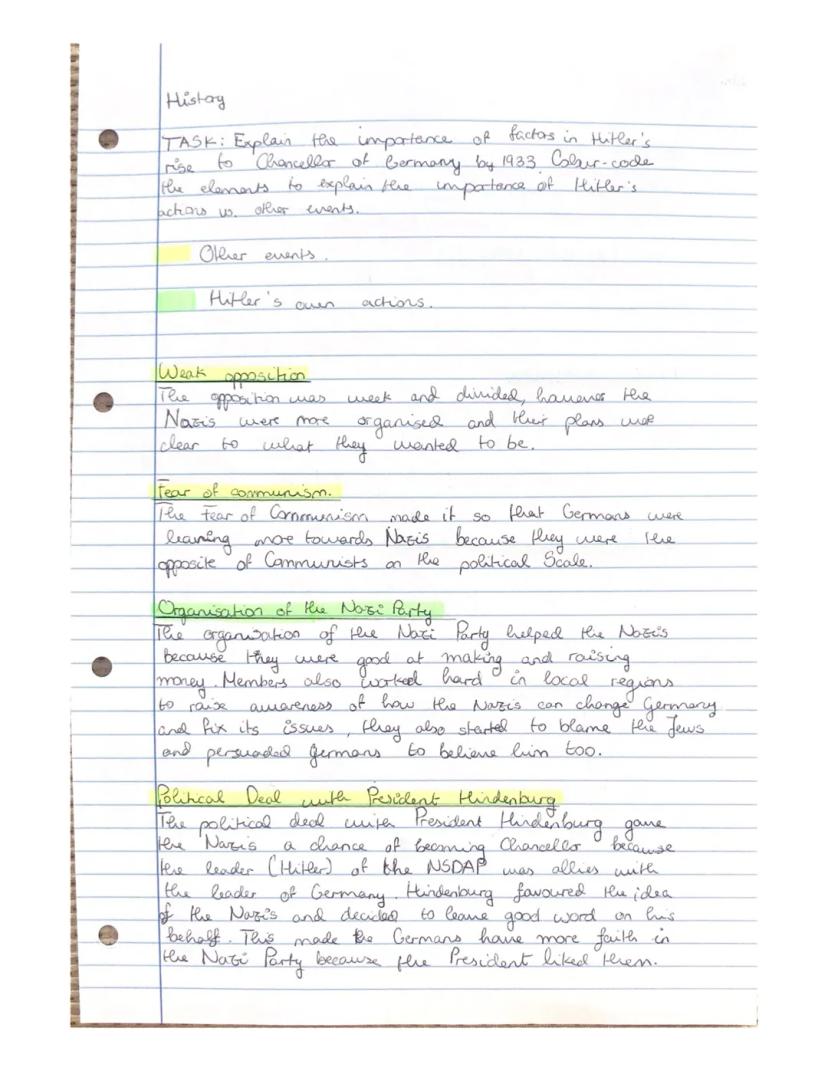 History
TASK: Explain the importance of factors in Hitler's
rise to Chancellor of Germany by 1933. Colour-code
the elements to explain the importance of Hitler's
actions vs. other events.
Other events.
Hitler's own actions.
Weak opposition
The opposition was weak and divided, however the
Nazis were more organised and their plans were
clear to what they wanted to be.
Fear of communism.
The Fear of Communism made it so that Germans were
leaning more towards Nazis because they were the
opposite of Communists on the political Scale.
Organisation of the Nazi Party
The organisation of the Nazi Party helped the Nazis
because they were good at making and raising
money. Members also worked hard in local regions
to raise awareness of how the Nazis can change Germany
and fix its issues, they also started to blame the Jews
and persuaded germans to believe him too.
Political Deal with President Hindenburg
The political deal with President Hindenburg gave
the Nazis a chance of becoming Chancellor because
the leader (Hitler) of the NSDAP was allies with
the leader of Germany. Hindenburg favoured the idea
of the Nazis and decided to leave good word on his
behalf. This made the Germans have more faith in
the Nazi Party because the President liked them.